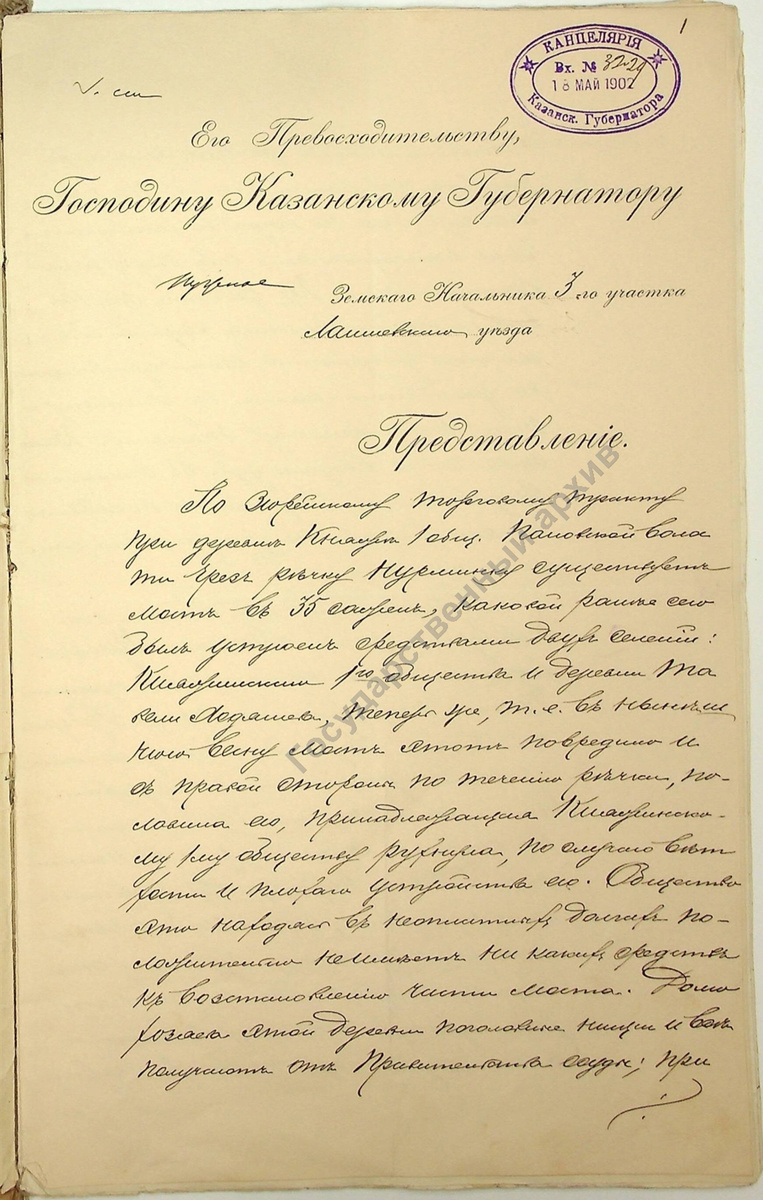 1
КАНЦЕЛЯРІЯ
Вх. № 3229
18 МАЙ 1902
Казанск. Губернатора
Его Превосходительству,
Господину Казанскому Губернатору
Земскаго Начальника 3-го участка
Лаишевскаго уѣзда
Представленіе.
По Зюрейскому торговому тракту
при деревнѣ 1 общ. воло
ти чрезъ рѣчку Нурминку существуетъ
мостъ въ 35 саженъ, каковой ранѣе сего
былъ устроенъ средствами двухъ селеній:
1го общества и деревни
теперь же, т. е. въ нынѣш
нюю весну мостъ этотъ повредило и
съ правой стороны по теченію рѣчки, по-
ловина его, принадлежащая
му 1му обществу рухнула, по случаю вѣт
хости и плохаго устройства его. Общество
это находясь въ неоплатныхъ долгахъ по-
ложительно неимѣетъ ни какихъ средствъ
къ возстановленію части моста. Домо
хозяева этой деревни поголовно нищіе и всѣ
получаютъ отъ Правительства ссуды; при
Государственный архив